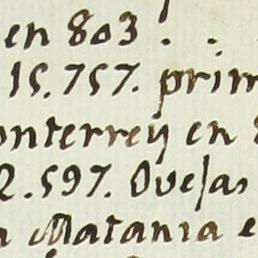 en 803 . .
15.757. prim
onterrey en
2.597. Ovejas
a Matania e